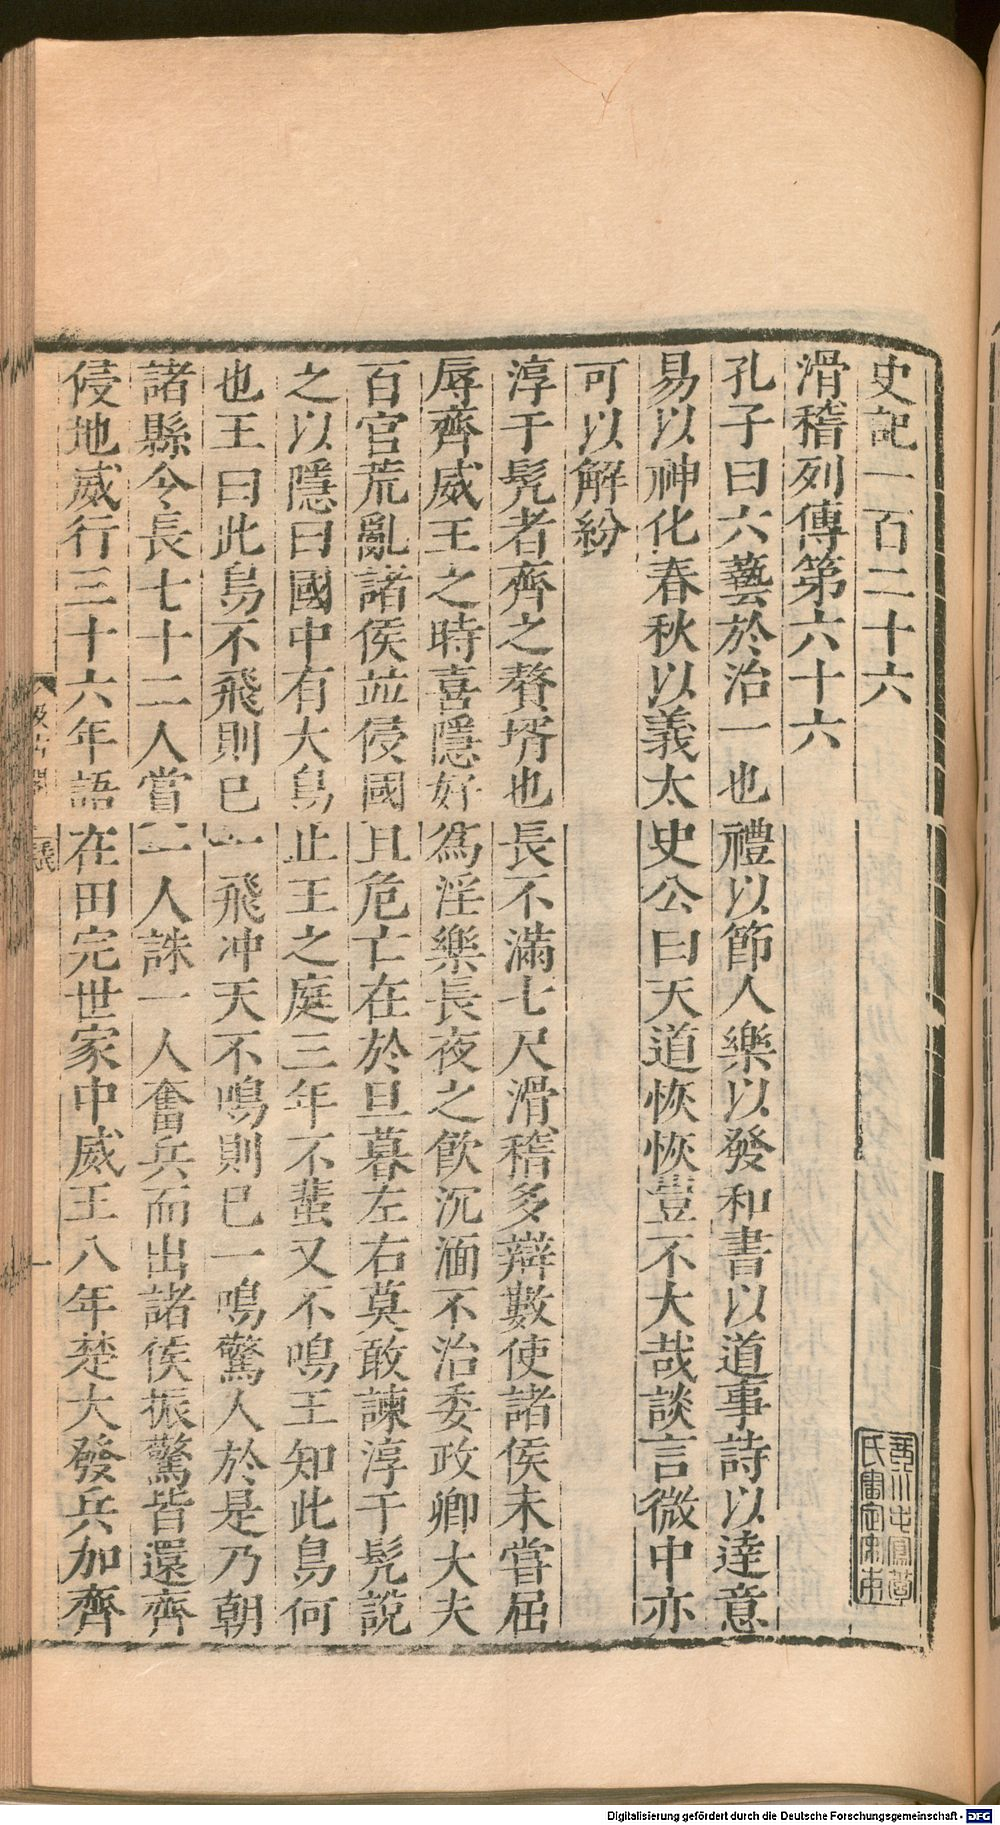 史記一百二十六
滑稽列傳第六十六
孔子曰六藝於治一也禮以節人樂以發和書以道事詩以達意
易以神化春秋以義太史公曰天道恢恢豈不大哉談言微中亦
可以解紛
淳于髡者齊之贅壻也長不滿七尺滑稽多辯數使諸侯未嘗屈
辱齊威王之時喜隱好爲淫樂長夜之飮沉湎不治委政卿大夫
百官荒亂諸侯並侵國且危亡在於旦暮左右莫敢諫淳于髡說
之以隱曰國中有大鳥止王之庭三年不蜚又不鳴王知此鳥何
也王曰此鳥不飛則已一飛冲天不鳴則已一鳴驚人於是乃朝
諸縣令長七十二人賞一人誅一人奮兵而出諸侯振驚皆還齊
侵地威行三十六年語在田完世家中威王八年楚大發兵加齊
Digitalisierung gefördert durch die Deutsche Forschungsgemeinschaft - DFG